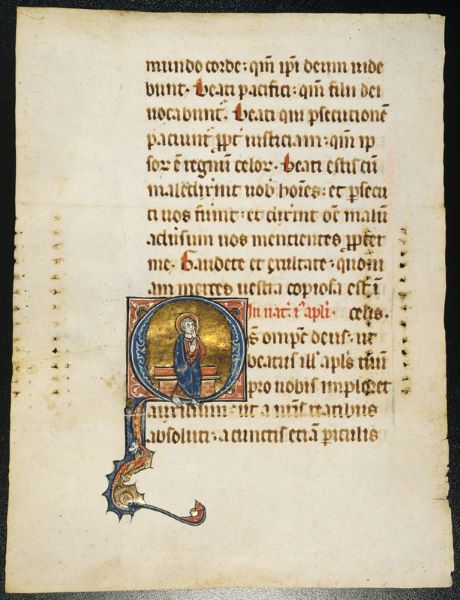 mundo corde: qm̄ ip̄i deum uide
bunt. Beati pacifici: qm̄ filii dei
uocabunt̄. Beati qui ꝑsecutionē
paciunt̄ ꝓpt̄ iusticiam: qm̄ ip
soꝝ ē regnū celoꝝ. Beati estis cū
maledix̄int uob̄ hoīes: et ꝑsecu
ti uos fūint: et dix̄int om̄e malū
aduersum uos mencientes ꝓpter
me. Gaudete et exultate: quoni
am merces uestra copiosa est ī
In nat̄. i̅ apl̄i. celis.
S̄ omp̄c deus: ut
beatus ill̄ apl̄s tuū
pro nobis imploret
auxilium: ut a nr̄is reatibus
absoluti: a cunctis etiā periculis